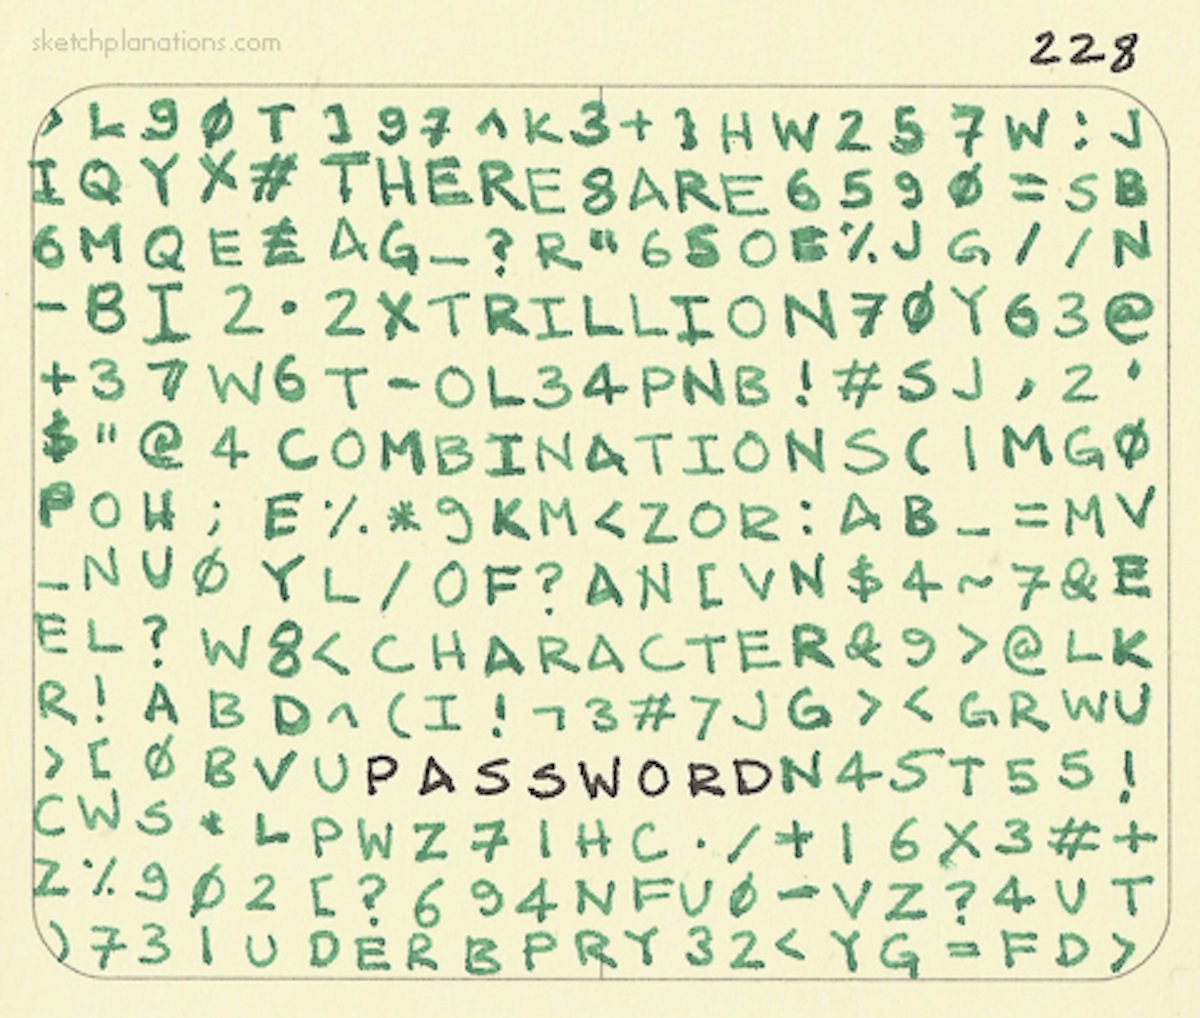 sketchplanations.com
228
> L 9 Ø T ] 9 7 ^ K 3 + ] H W 2 5 7 W : J
I Q Y X # T H E R E 8 A R E 6 5 9 Ø = S B
6 M Q E E A G _ ? R " 6 5 O E % J G / / N
- B I 2 · 2 X T R I L L I O N 7 Ø Y 6 3 @
+ 3 7 W 6 T - O L 3 4 P N B ! # S J , 2 '
$ " @ 4 C O M B I N A T I O N S ( I M G Ø
P O H ; E % * 9 K M < Z O R : A B _ = M V
_ N U Ø Y L / O F ? A N [ V N $ 4 ~ 7 & E
E L ? W 8 < C H A R A C T E R & 9 > @ L K
R ! A B D ^ ( I ! ¬ 3 # 7 J G > < G R W U
> [ Ø B V U P A S S W O R D N 4 5 T 5 5 !
C W S * L P W Z 7 I H C · / + I 6 X 3 # +
Z % 9 Ø 2 [ ? 6 9 4 N F U Ø - V Z ? 4 U T
) 7 3 I U D E R B P R Y 3 2 < Y G = F D >